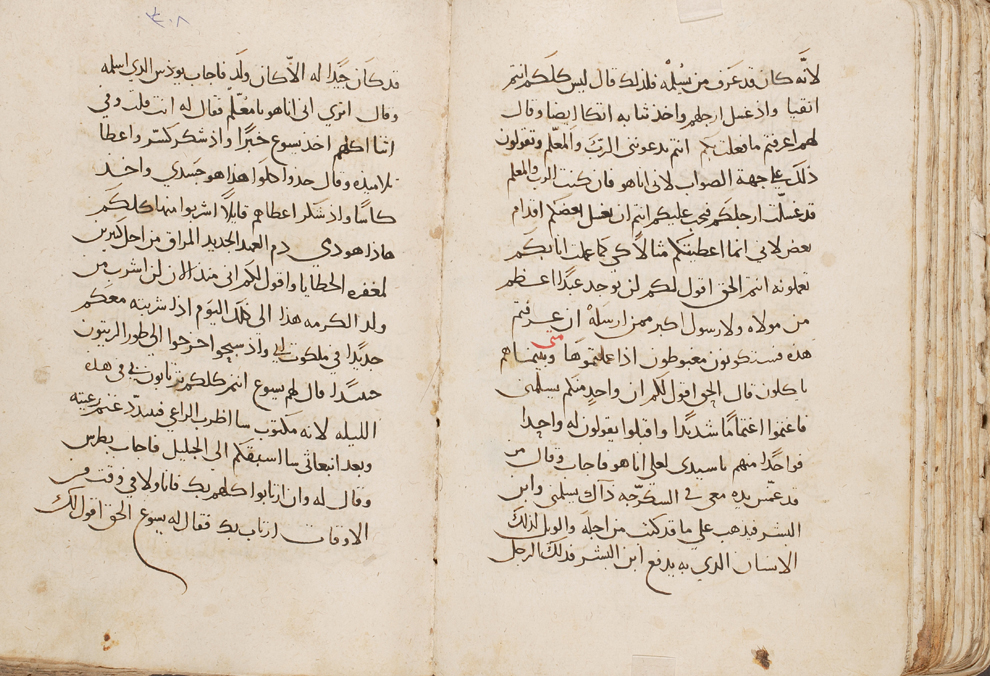 لانّه كان قد عرف من يُسْلمْه فلذلك قال ليس كلكم انتم
انقيا واذ غسل ارجلهم واخذ ثيابه اتكا ايضا وقال
لهم اعرفتم ما فعلت بكم انتم تدعونني الربّ والمعلّم وتقولون
ذلك على جهة الصواب لاني انا هو فان كنت الرب والمعلم
قد غسلت ارجلكم فيجب عليكم انتم ان يغسل بعضكم اقدام
بعض لاني انما اعطيتكم مثالاً كي كما عملت انا بكم
تعملونه انتم الحق اقول لكم لن يوجد عبدًا اعظم
من مولاه ولا رسول اكبر ممن ارسله ان عرفتم
هذه فستكونون مغبوطون اذا عملتموها وبينما هم
متى
ياكلون قال الحق اقول لكم ان واحدٍ منكم يسلمني
فاغتموا اغتمامًا شديدًا واقبلوا يقولون له واحِدا
فواحدًا منهم يا سيدي لعلي انا هو فاجاب وقال من
قد غمّس يده معي في السكرّجه ذاك يسلمني وابن
البشر فيذهب على ما قد كتب من اجله والويل لذلك
الانسان الذي به يدفع ابن البشر فذلك الرجل
٣٠٨
قد كان جيّدا له الاّ كان ولِد فاجاب يوذس الذي اسلمه
وقال اترى اني انا هو يا معُلّم فقال له انت قلت وفي
اثنا اكلهم اخذ يسوع خبزًا واذ شكر كسّر واعطا
تلاميذه وقال خذوا كلوا هذا هو جسَدي واخذ
كاسًا واذ شكر اعطاهم قايلاً اشربوا منها كلكم
هاذا هو دمي دم العهد الجديد المراق من اجل كثيرين
لمغفره الخطايا واقول لكم اني منذ الان لن اشرب من
ولد الكرمه هذا الى ذلك اليوم اذا شربته معكم
جديدًا في ملكوت ابي واذ سبحوا خرجوا الى طور الزيتون
حينيدًا قال لهم يسوع انتم كلكم ترتابون بي في هذه
الليله لانه مكتوب سااضرب الراعي فتبدّد غنم رعيته
وبعد انبعاثي ساسبقكم الى الجليل فاجاب بطرس
وقال له وان ارتابوا كلهم بك فانا ولا في وقت من
الاوقات ارتاب بك فقال له يسوع الحق اقول لك